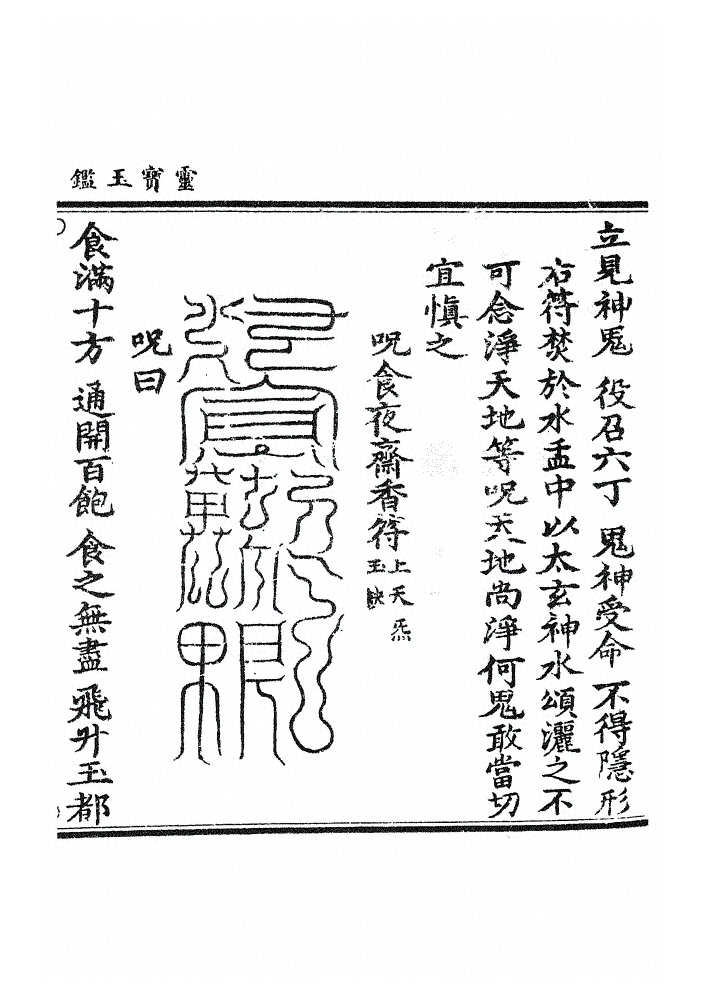 靈寶玉鑑
立見神鬼 役召六丁 鬼神受命 不得隱形
右符焚於水盂中以太玄神水頌灑之不
可念淨天地等呪天地尚淨何鬼敢當切
宜慎之
呪食夜齋香符上天炁
玉缺
呪曰
食滿十方 通開百飽 食之無盡 飛升玉都